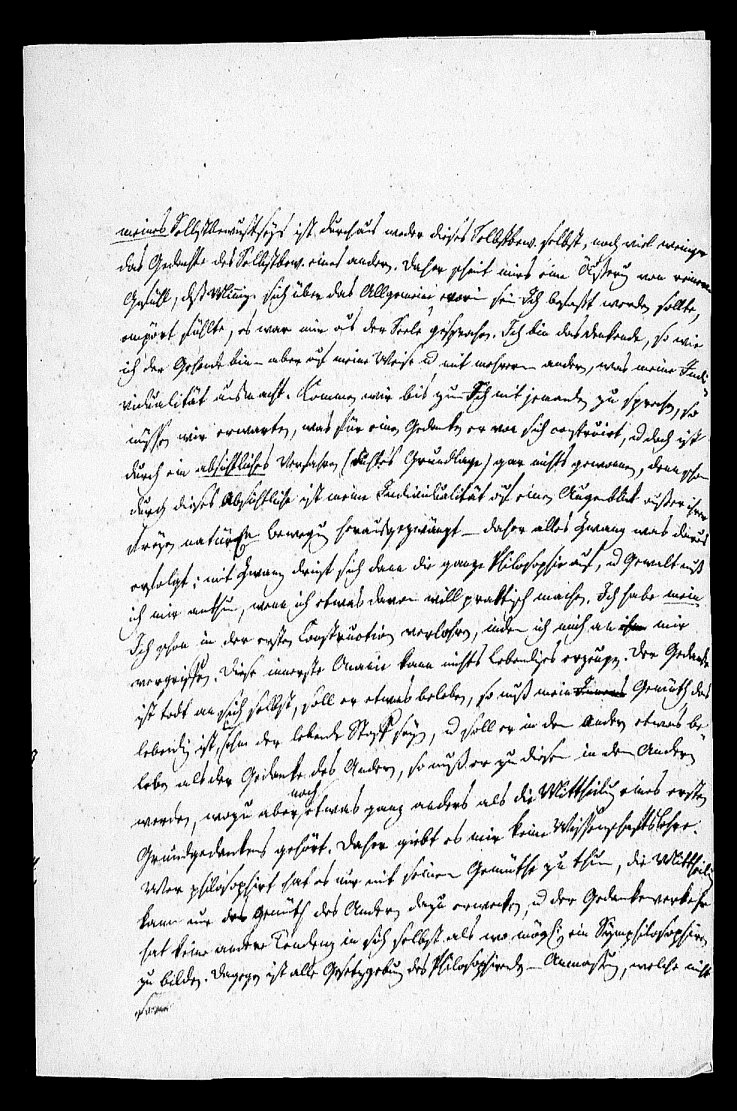 meines Selbstbewußtseyns ist durchaus weder dieses Selbstbew. selbst, noch viel weniger
das Gedachte des Selbstbew. eines andern. Daher scheint mir eine Äußerung von
Gefühl, daß sich über das Allgemeine, worin sein Ich befaßt werden sollte,
empört fühlte, es war mir aus der Seele gesprochen. Ich bin das denkende, so wie
ich der Gehende bin – aber auf meine Weise u mit mehrerem andern, was meine Indi-
vidualität ausmacht. Kommen wir bis zum Ich mit jemanden zu sprechen, so
müssen wir erwarten, was für einen Gedanken er vor sich construirt, u doch ist
durch ein absichtliches Verfahren (Grundlage) gar nichts gewonnen, denn schon
durch dieses Absichtliche ist meine Individualität auf einen Augenblick außer ihrer
freyen natürlichen Bewegung herausgezwängt – daher alles Zwang was daraus
erfolgt: mit Zwang dringt sich dann die ganze Philosophie auf, u Gewalt muß
ich mir anthun, wenn ich etwas davon will praktisch machen. Ich habe mein
Ich schon in der ersten Construction verlohren, indem ich mich an mir
vergriffen. Diese innerste Onanie kann nichts lebendiges erzeugen. Der Gedanke
ist todt an sich selbst, soll er etwas beleben, so muß mein Gemüth, das
lebendig ist, ihm der lebende Stoff seyn, u soll er in dem Andern etwas be-
leben als der Gedanke des Andern, so muß er zu diesem in dem Andern
werden, wozu aber noch etwas ganz anders als die Mittheilung eines ersten
Grundgedankens gehört. Daher giebt es mir keine Wissenschaftslehre.
Wer philosophirt hat es nur mit seinem Gemüthe zu thun, die Mittheilung
kann nur das Gemüth des Andern dazu erwecken, u der Gedankenverkehr
hat keine andere Tendenz in sich selbst als wo möglich ein Symphilosophiren
zu bilden. Dagegen ist alle Gesetzgebung des Philosophirenden – Anmaßung, welche nicht